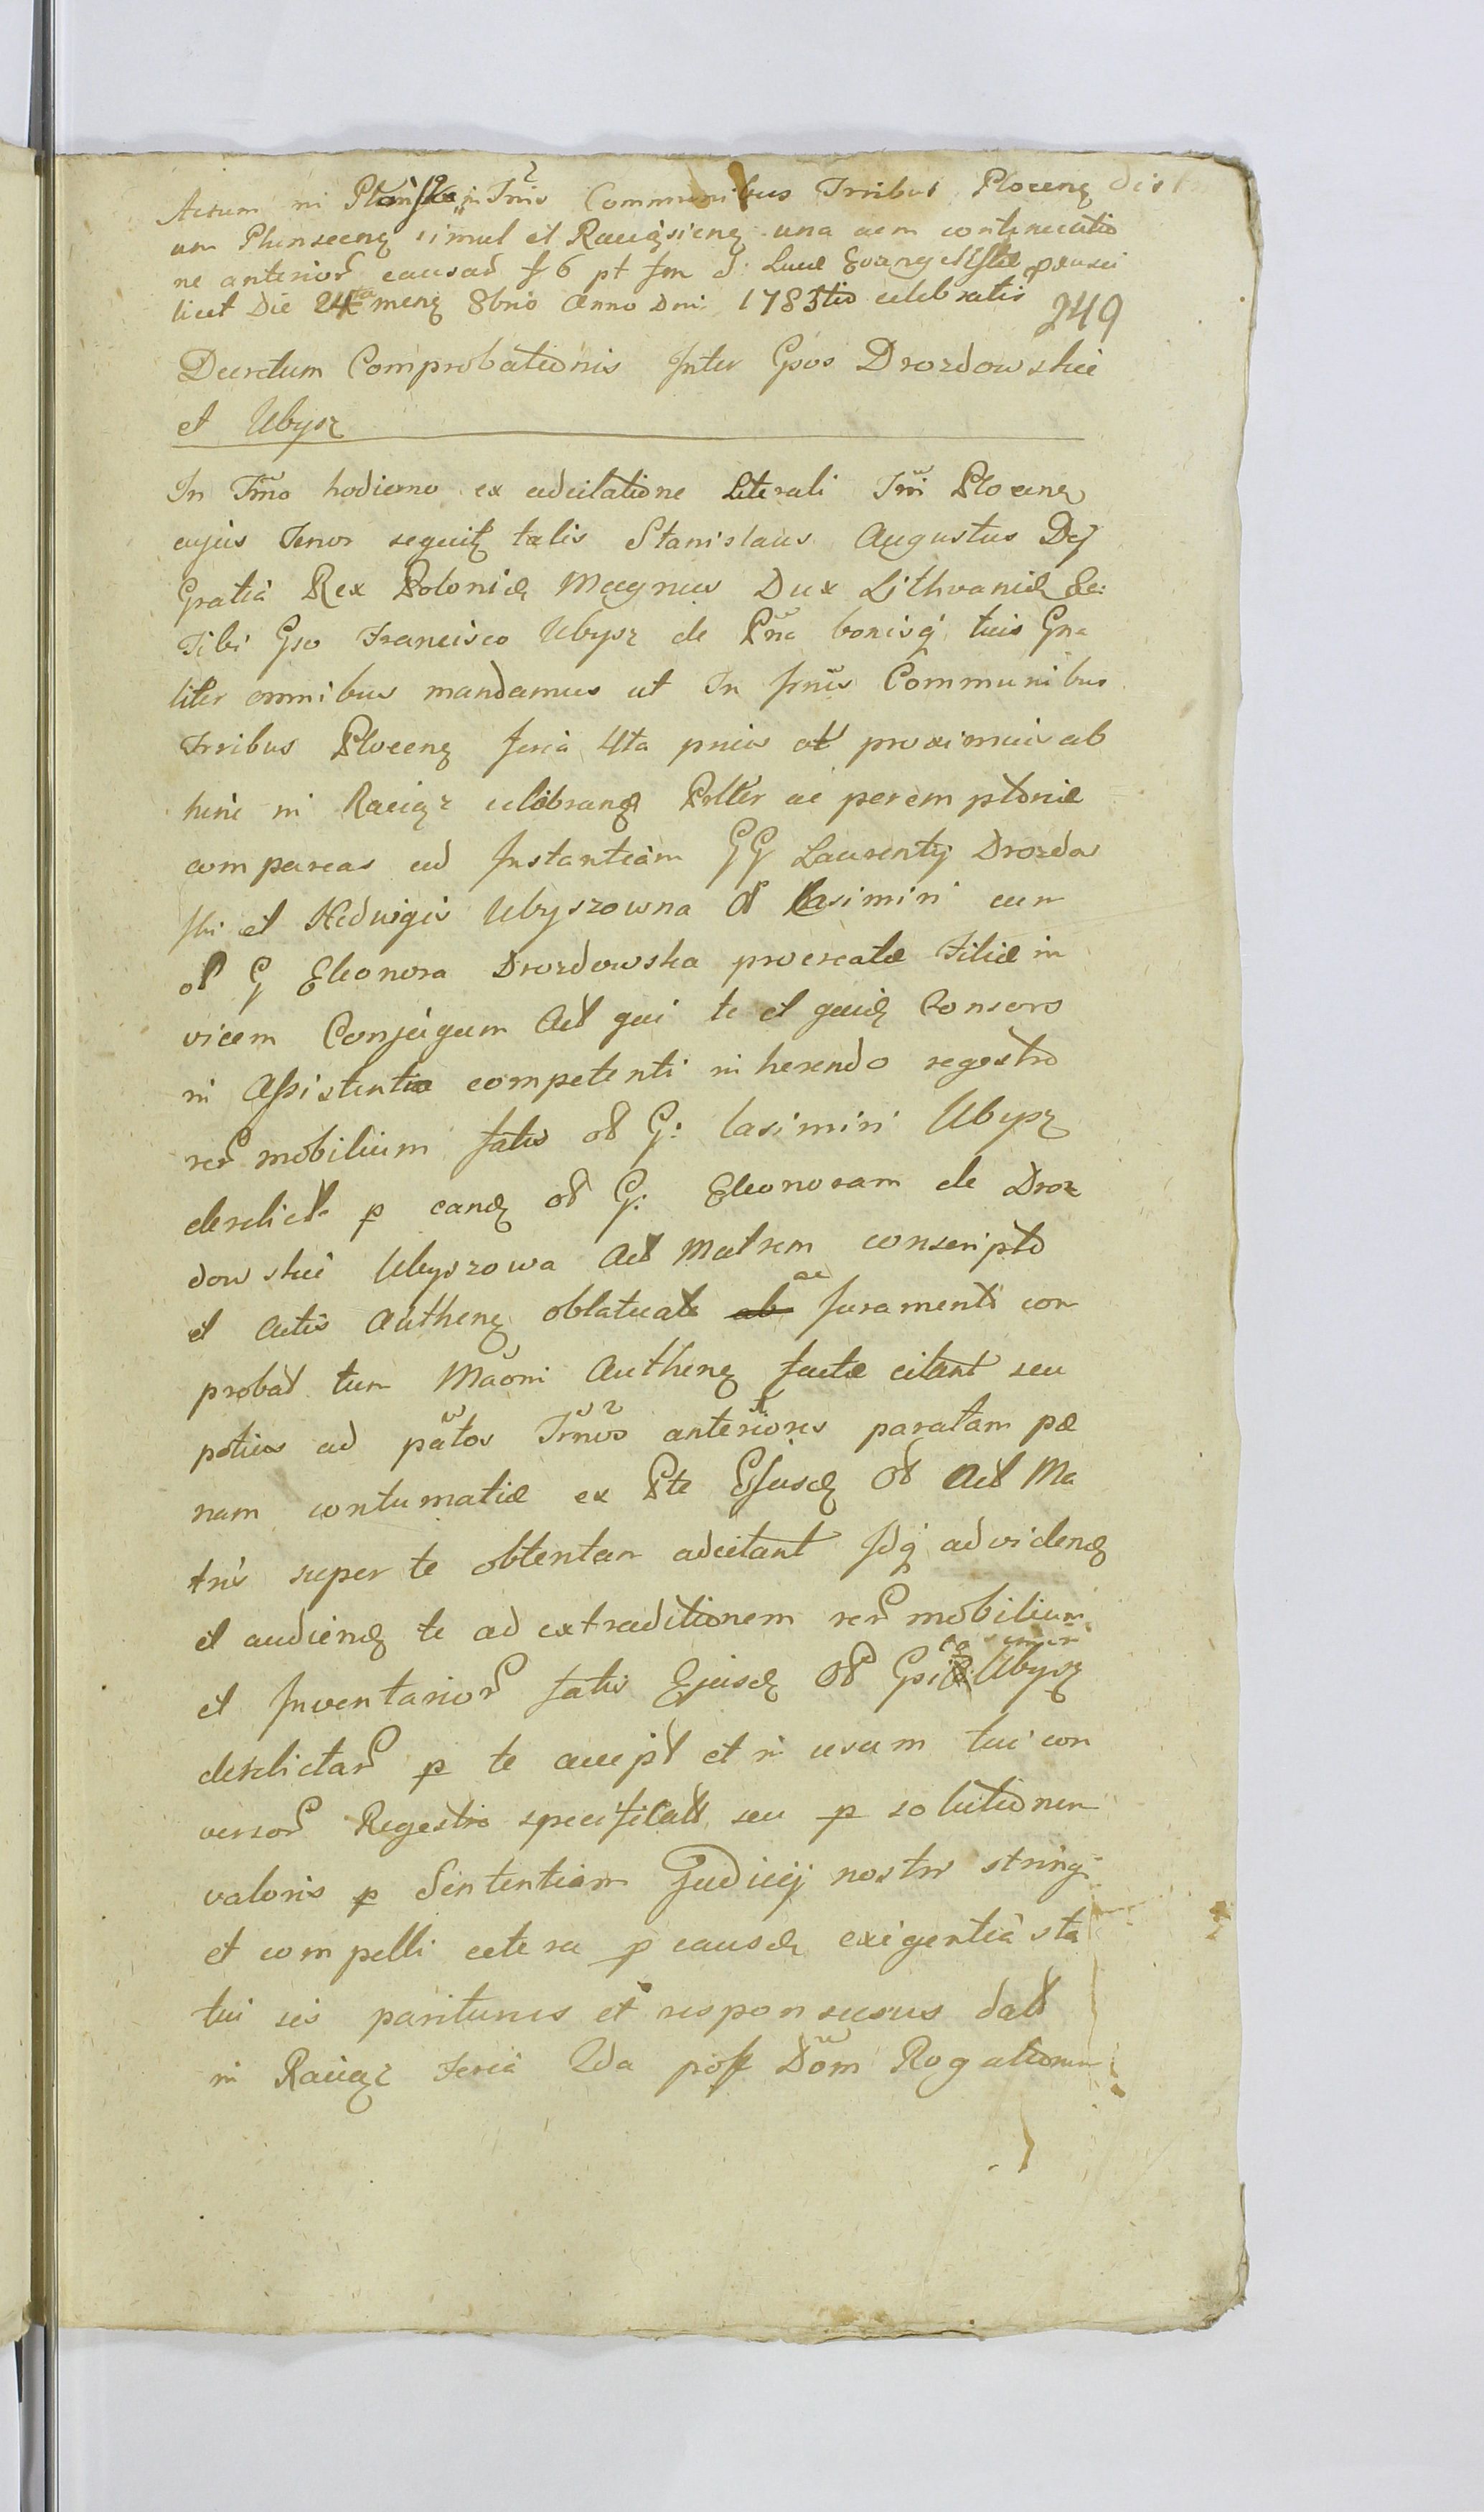 Actum in Płońsko in Tmis Communibus Trribus Plocenz Dist
um Plunscenz simul et Raciąsienz una cum continuatio
ne anterior causar f 6 pt fm S: Lucæ Evangelistæ præusci
licet Die 24ta menz 8bris Anno Dni 1783tio celebratis
249
Decretum Comprobationis Inter Gsos Drozdowskie
et Ubysz
In Tmo hodierno ex adcitatione Literali Tmi Plocenz
cujus Tenor seqvitz talis Stanislaus Augustus Dej
Gratia Rex Poloniæ Magnus Dux Lithvaniæ &c:
Tibi Gso Francisco Ubysz de Pna bonisq tuis Gna
liter omnibus mandamus ut In Tmis Communibus
Trribus Plocenz feria 4ta pmis et proximis ab
hinc in Raciąz celebrandz Pltter ac peremptorie
compareas ad Instantiam GG Laurentij Drozdow
ski et Hedvigis Ubyszowna ol Casimiri cum
ol G Eleonora Drozdowska procreatæ Filiæ in
vicem Conjugum Act qui te et quidz Consors
in Assistentia competenti inherendo regestro
rer mobilium fatis ol G: Casimiri Ubysz
derelict p eandz ol G: Eleonoram de Droz
dowskie Ubyszowa Act Matrem conscripto
et Actis Authenz oblatuat ab ac Juramenti com
probat tum Maoni Authenz factæ citant seu
potius ad patos Tmos anteriores paratam pæ
nam contumatiæ ex Pte Ejusdz Ol Act Ma
tris super te obtentam adcitant Idq ad videndz
et audiendz te ad extraditionem rer mobilium
et Inventarior fatis Ejusdz Ol Gsi Casimir Ubysz
derelictar p te accept et in usum tui con
versor Regestro specificatt seu p solutionem
valoris p Sententiam Judicij nostri stringi
et compelli cetera p causdz exigentia sta
tui sis pariturus et responsurus datt
in Raciąz Feria 2da post Dom Rogationum